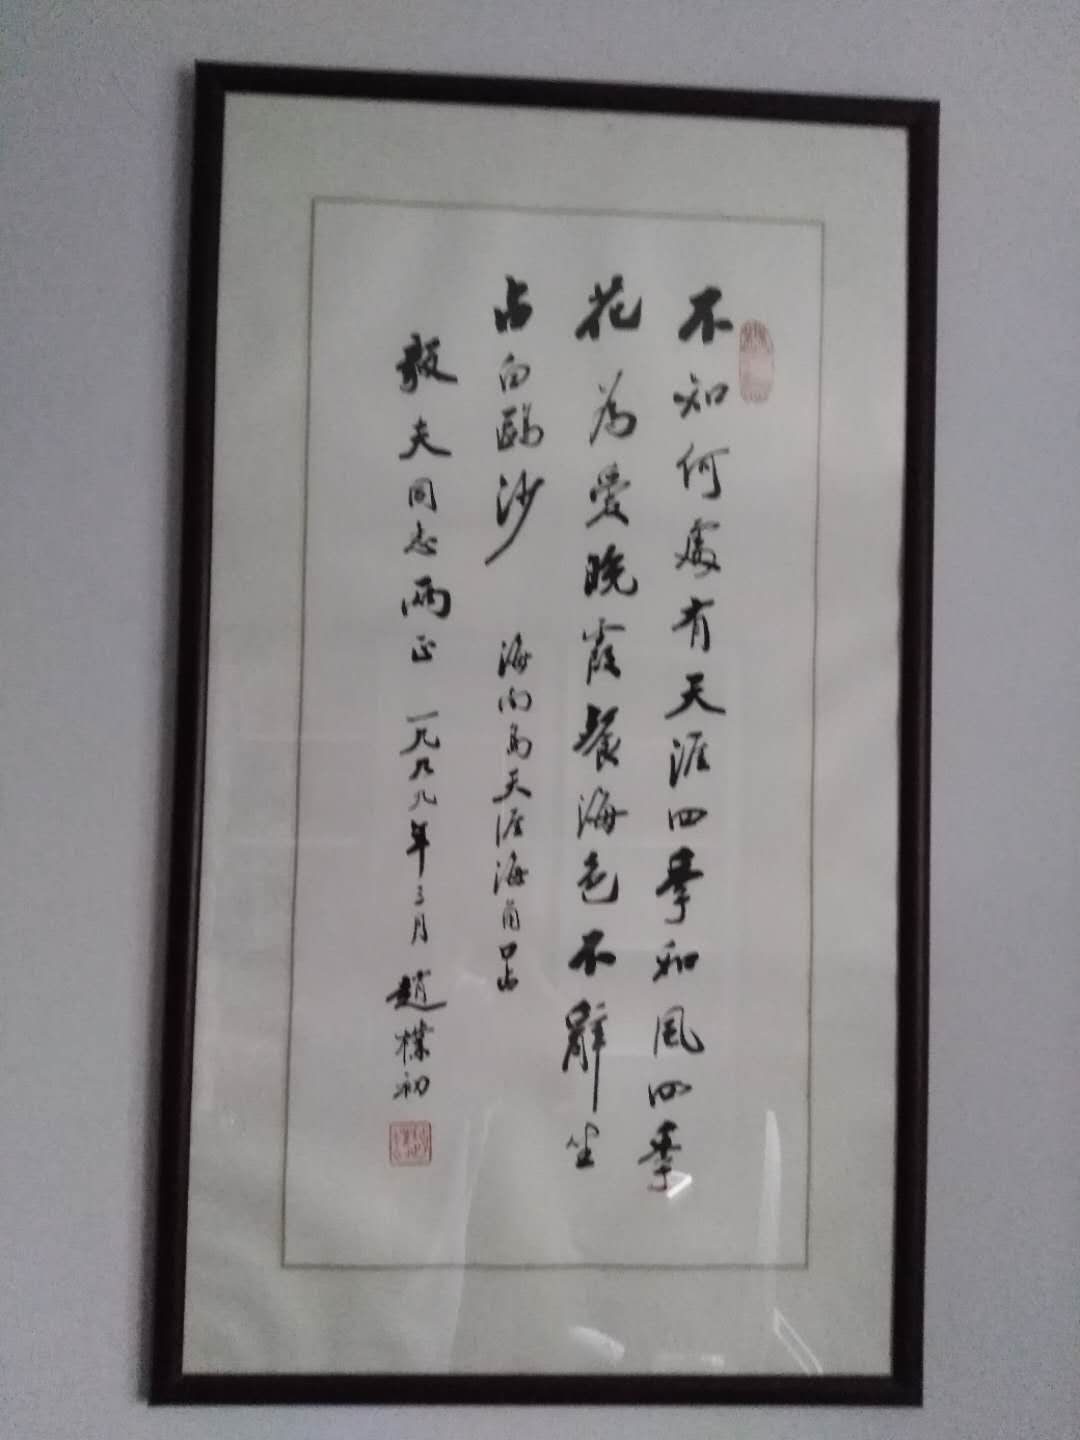 不知何處有天涯四季和風四季
花為愛晚霞餐海色不辭坐
占白鷗沙
海南島天涯海角口占
毅夫同志兩正 一九九九年三月 趙樸初